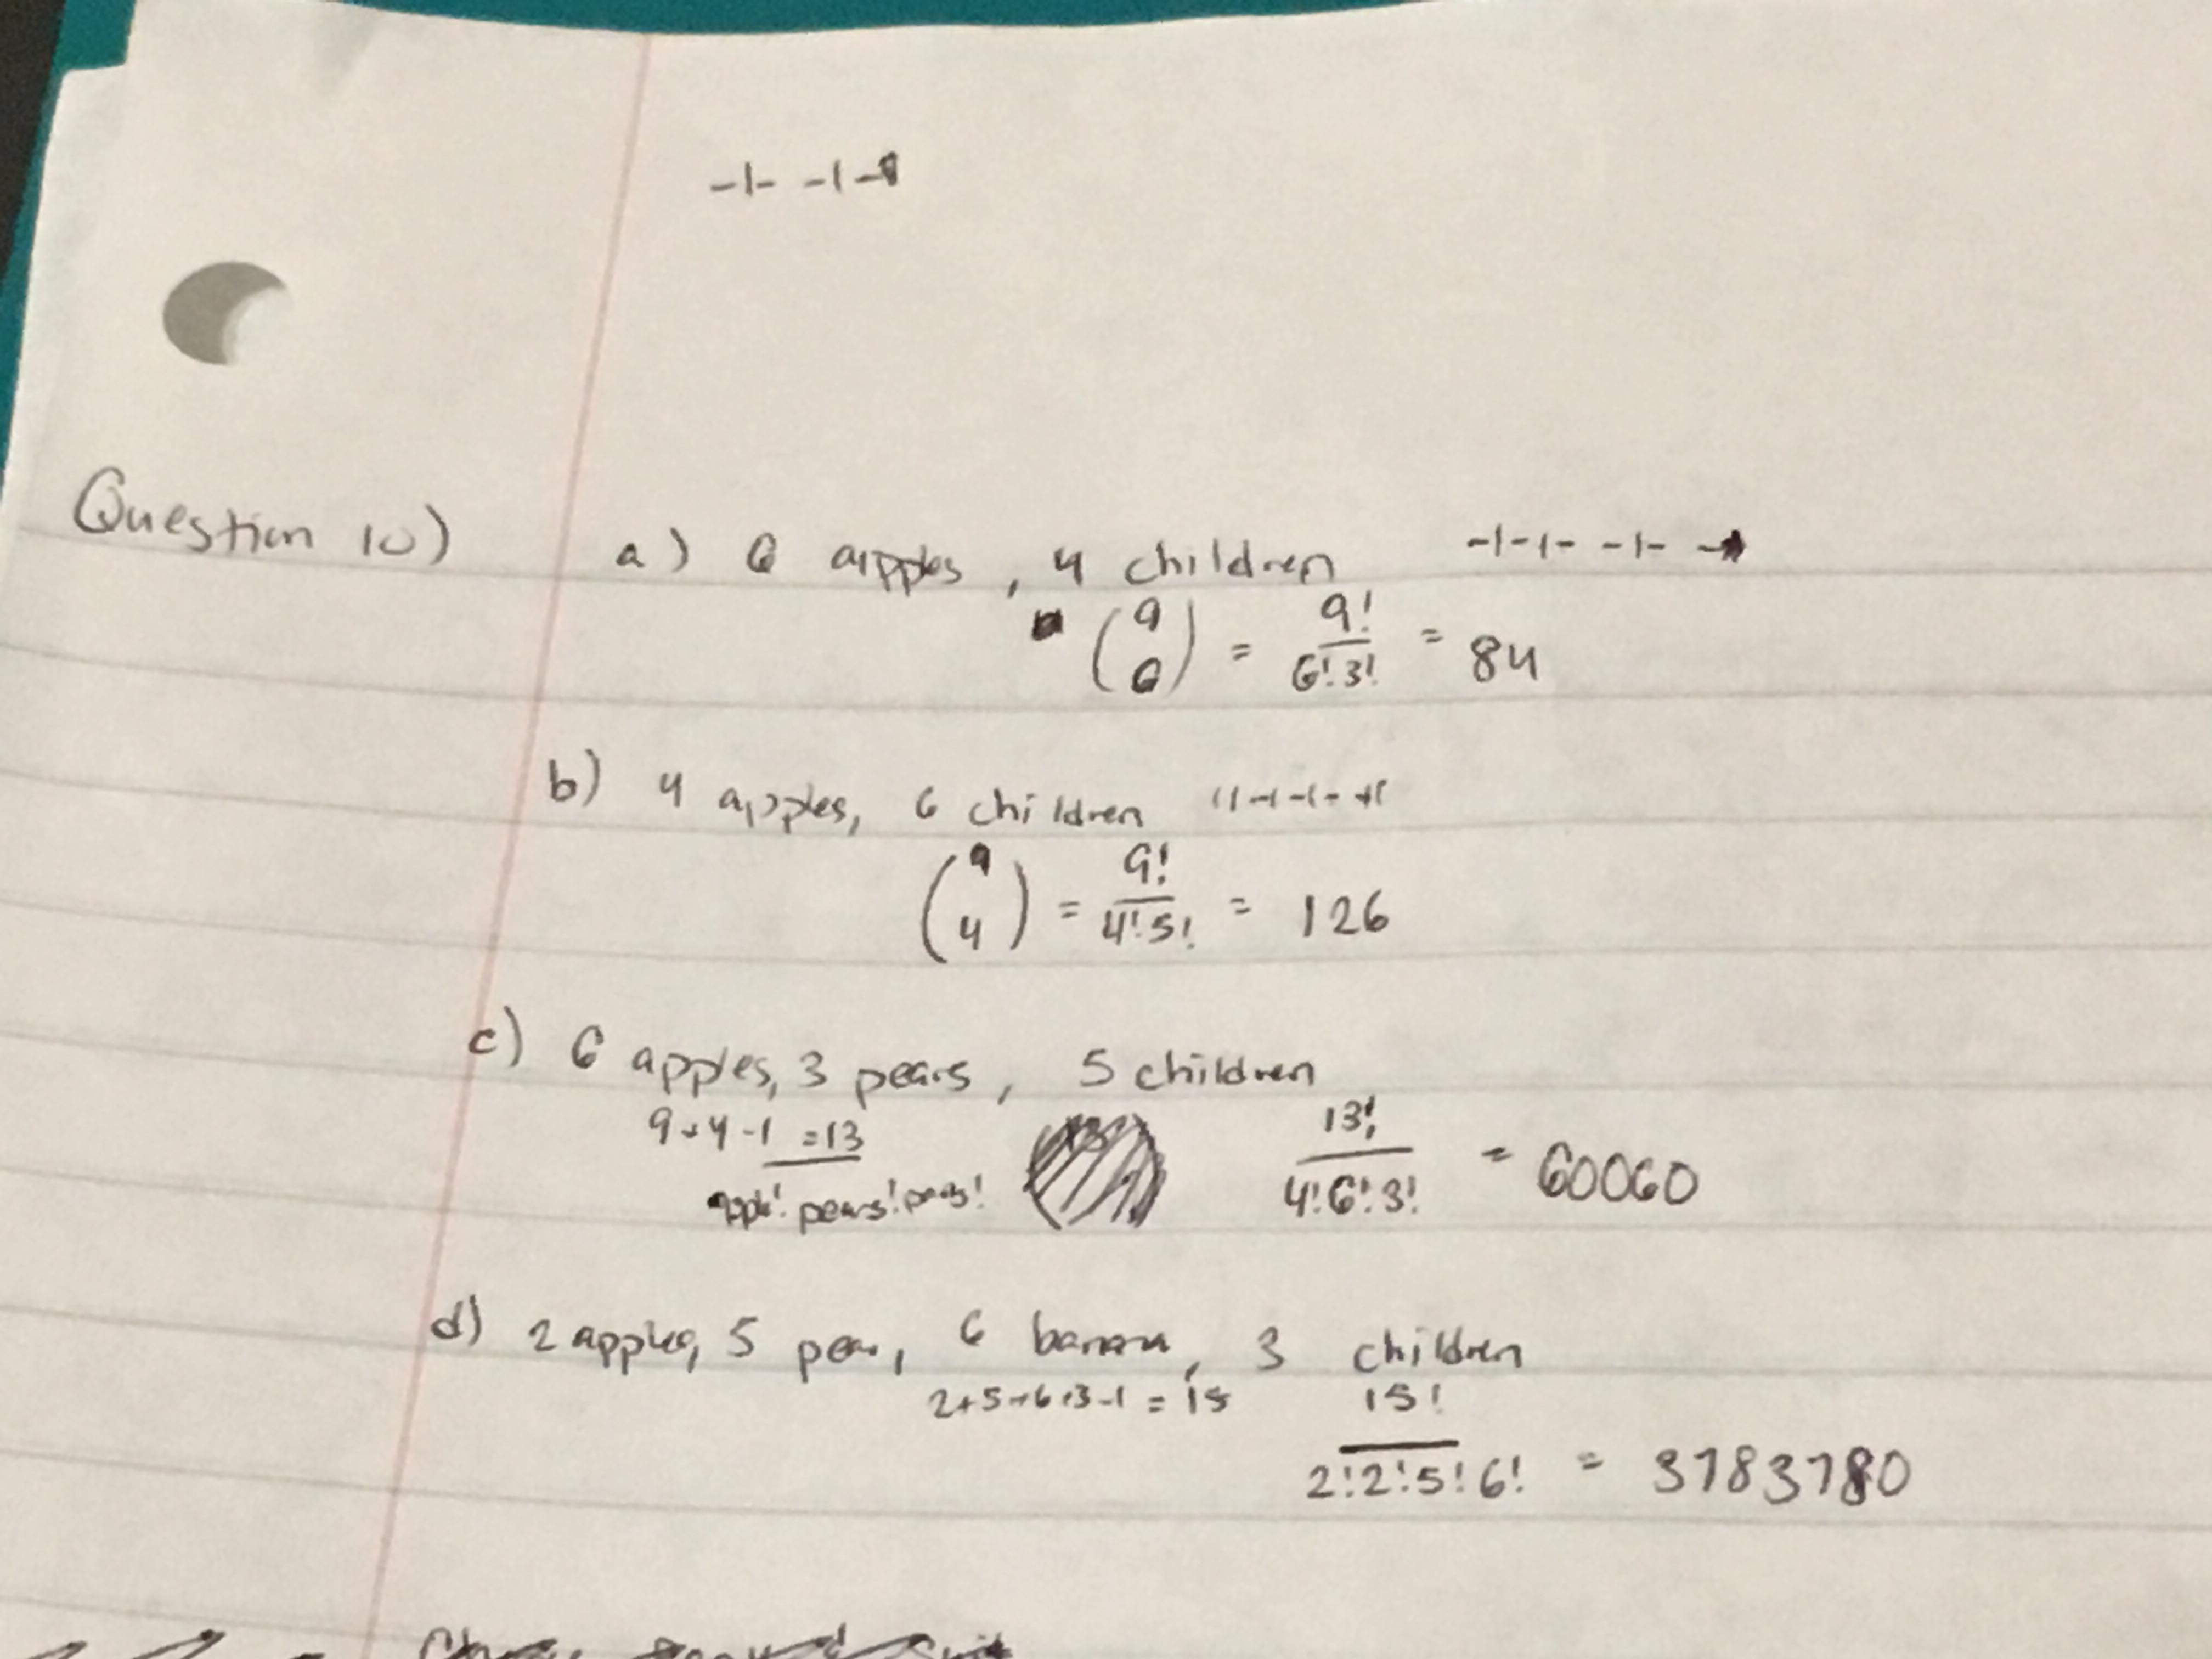 -|- -|-
Question 10) a) 6 apples, 4 children -|-|- -|- -
(9 6) = 9!/6!3! = 84
b) 4 apples, 6 children
(9 4) = 9!/4!5! = 126
c) 6 apples, 3 pears, 5 children
9+4-1 =13 / apple! pears! 13!/4!6!3! = 60060
d) 2 apples, 5 pear, 6 banana, 3 children
2+5+6+3-1 = 15 15!/2!2!5!6! = 3783780